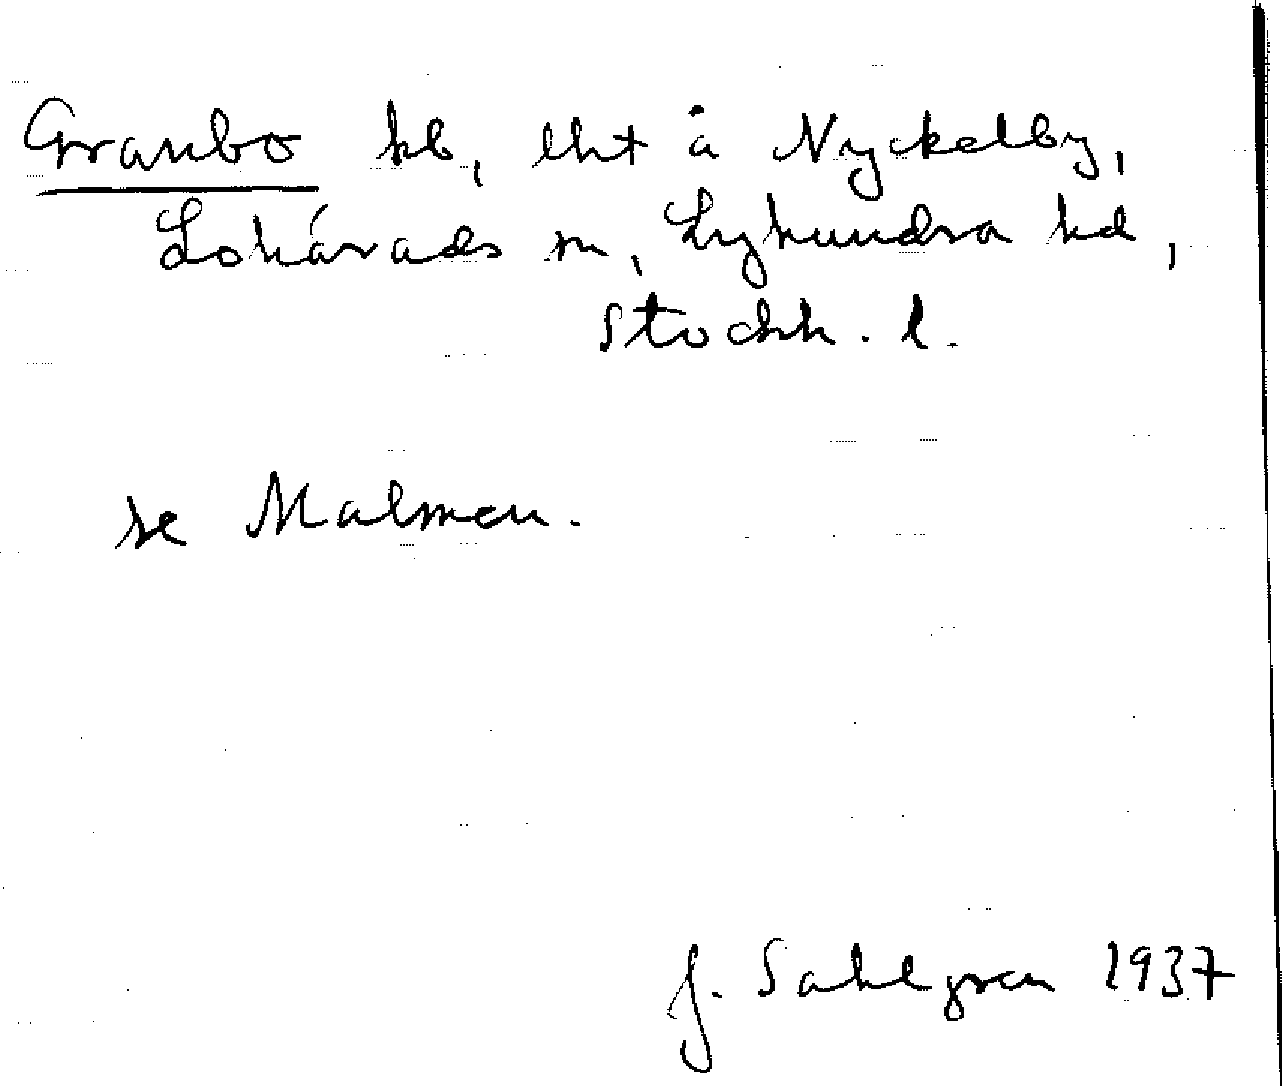 Granbo hb, lht å Nyckelby,
Lohärads sn, Lyhundra hd,
Stockh. l.
se Malmen.
J. Sahlgren 1937